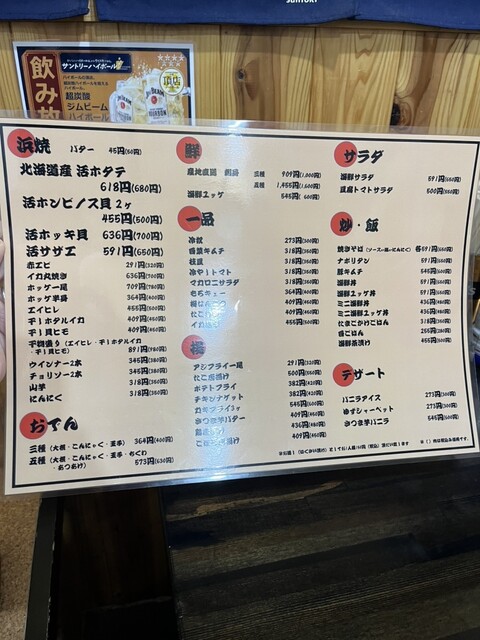 サントリーハイボール
超炭酸
ジムビーム
ハイボール
飲み放
頂店
浜焼
バター 45円(50円)
北海道産 活ホタテ
618円(680円)
活ホンビノス貝 2ヶ
455円(500円)
活ホッキ貝 636円(700円)
活サザエ 591円(650円)
赤エビ 291円(320円)
イカ丸焼き 636円(700円)
ホッケ一尾 709円(780円)
ホッケ半身 364円(400円)
エイヒレ 455円(500円)
干しホタルイカ 409円(450円)
干し貝ヒモ 409円(450円)
干物盛り(エイヒレ・干しホタルイカ
・干し貝ヒモ) 891円(980円)
ウインナー2本 345円(380円)
チョリソー2本 345円(380円)
山芋 318円(350円)
にんにく 318円(350円)
おでん
三種(大根・こんにゃく・玉子) 364円(400円)
五種(大根・こんにゃく・玉子・ちくわ
・あつあげ) 573円(630円)
鮮
産地直送 刺身 三種 909円(1,000円)
五種 1,455円(1,600円)
海鮮ユッケ 545円(600円)
一品
冷奴 273円(300円)
白菜キムチ 318円(350円)
枝豆 318円(350円)
冷やしトマト 318円(350円)
マカロニサラダ 318円(350円)
364円(400円)
409円(450円)
409円(450円)
455円(500円)
揚
アジフライ一尾 291円(320円)
たこ唐揚げ 500円(550円)
ポテトフライ 382円(420円)
チキンナゲット 382円(420円)
カキフライ3ヶ 545円(600円)
さつま芋バター 409円(450円)
436円(480円)
409円(450円)
サラダ
海鮮サラダ 591円(650円)
豆腐トマトサラダ 500円(550円)
炒・飯
焼きそば(ソースor塩orにんにく) 各591円(650円)
ナポリタン 591円(650円)
豚キムチ 545円(600円)
海鮮丼 591円(650円)
海鮮ユッケ丼 591円(650円)
ミニ海鮮丼 436円(480円)
ミニ海鮮ユッケ丼 436円(480円)
たまごかけごはん 318円(350円)
白ごはん 255円(280円)
海鮮茶漬け 455円(500円)
デザート
バニラアイス 273円(300円)
ゆずシャーベット 273円(300円)
さつま芋バニラ 545円(600円)
※( )内は税込み価格です。